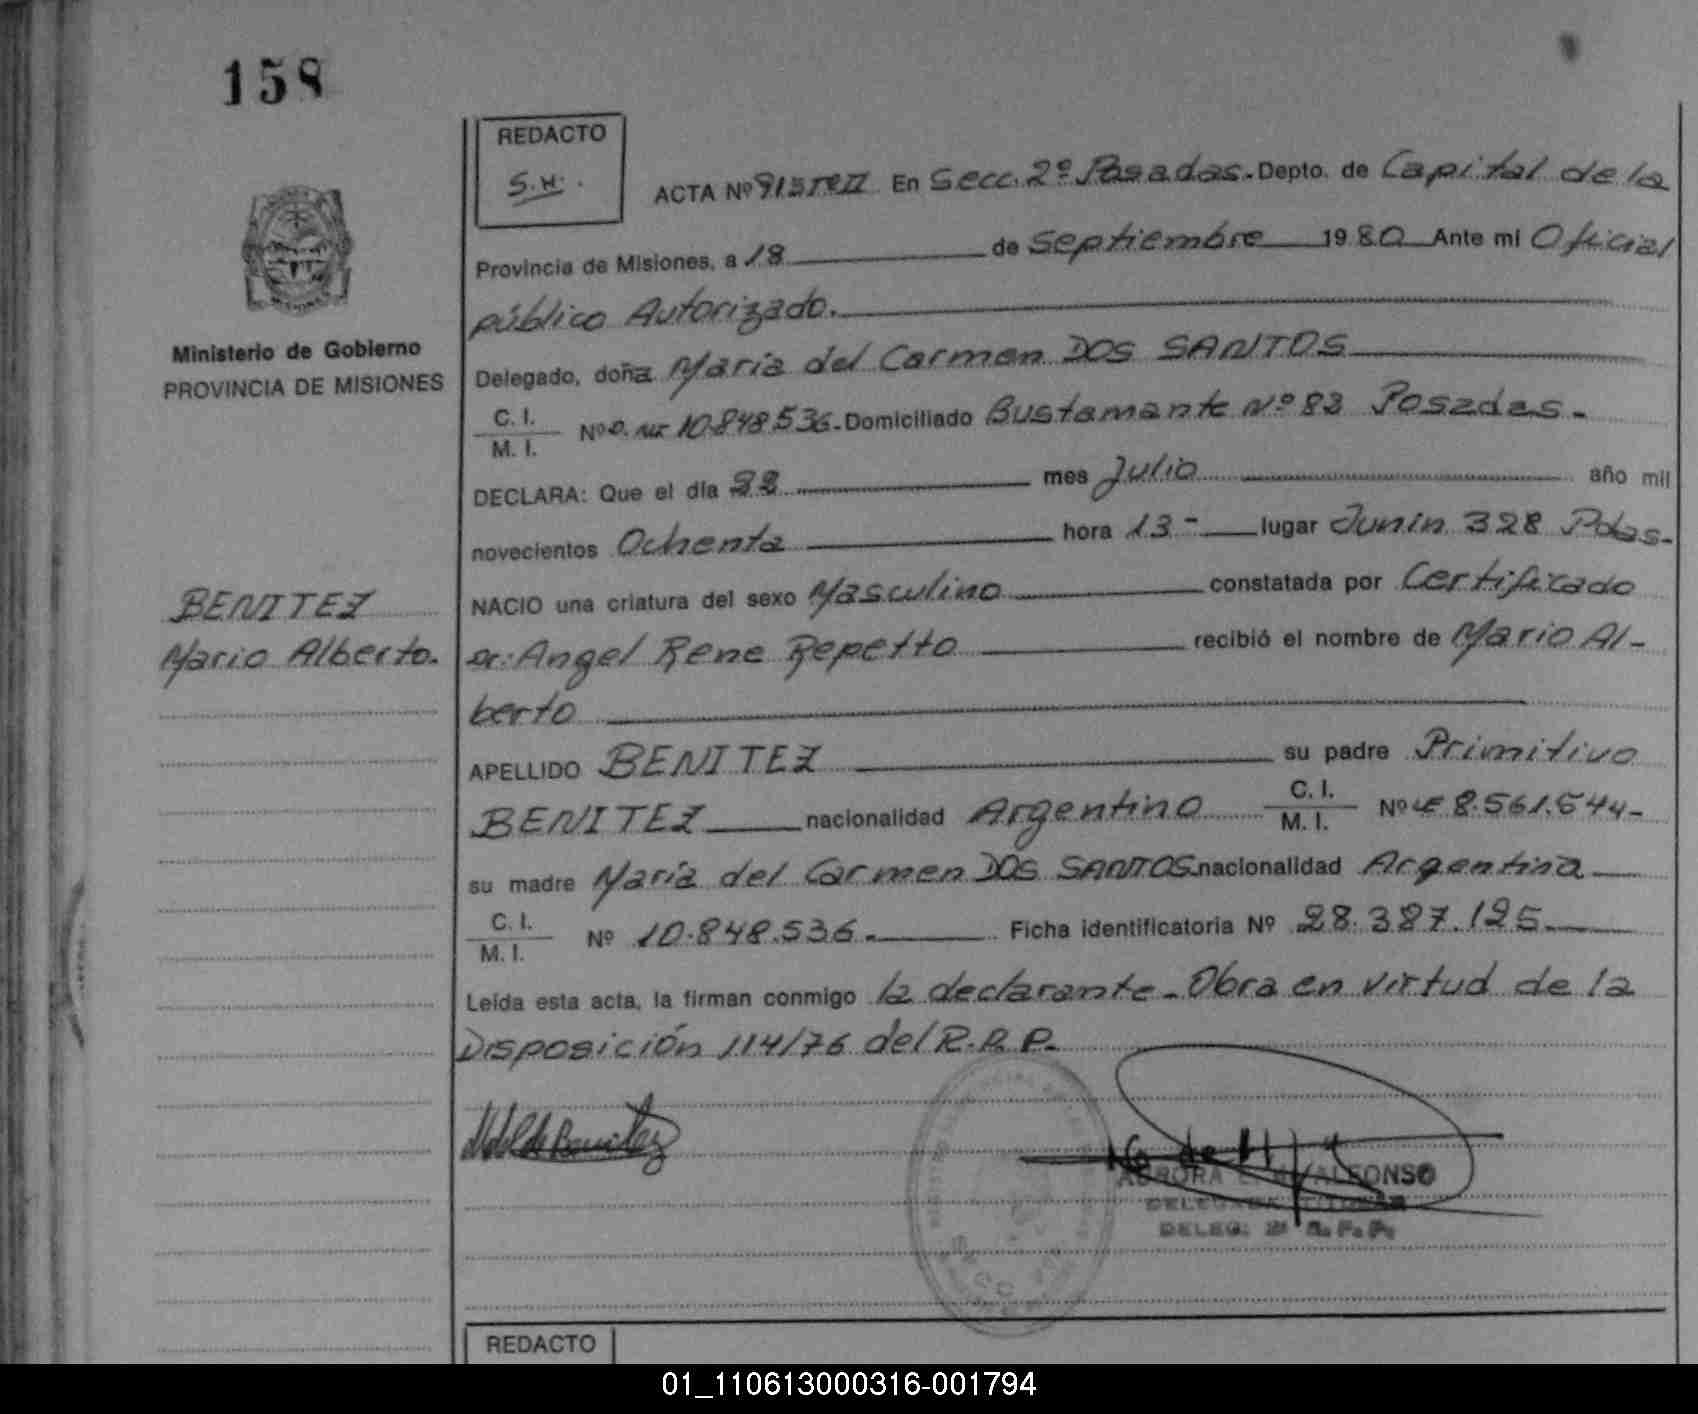 158
REDACTO
S.H.
ACTA Nº 913 Tº II En Secc. 2º Posadas.- Depto. de Capital de la
Provincia de Misiones, a 18 de Septiembre 1980 Ante mi Oficial
público Autorizado.
Ministerio de Gobierno
PROVINCIA DE MISIONES
Delegado, doña María del Carmen DOS SANTOS
C. I.
M. I.
Nº 10.848.536.- Domiciliado Bustamante Nº 83 Posadas.-
DECLARA: Que el día 22 mes Julio año mil
novecientos Ochenta hora 13.- lugar Junín 328 Pdas.-
NACIO una criatura del sexo Masculino constatada por Certificado
BENITEZ
Mario Alberto.
Dr. Angel Rene Repetto recibió el nombre de Mario Al-
berto
APELLIDO BENITEZ su padre Primitivo
BENITEZ nacionalidad Argentino C. I.
M. I.
Nº LE 8.561.544-
su madre María del Carmen DOS SANTOS nacionalidad Argentina
C. I.
M. I.
Nº 10.848.536.- Ficha identificatoria Nº 28.387.125.-
Leída esta acta, la firman conmigo la declarante.- Obra en virtud de la
Disposición 114/76 del R.P.P.-
AURORA ALFONSO
DELEGADA TITULAR
DELEG. 2ª R.P.P.
REDACTO
01_110613000316-001794